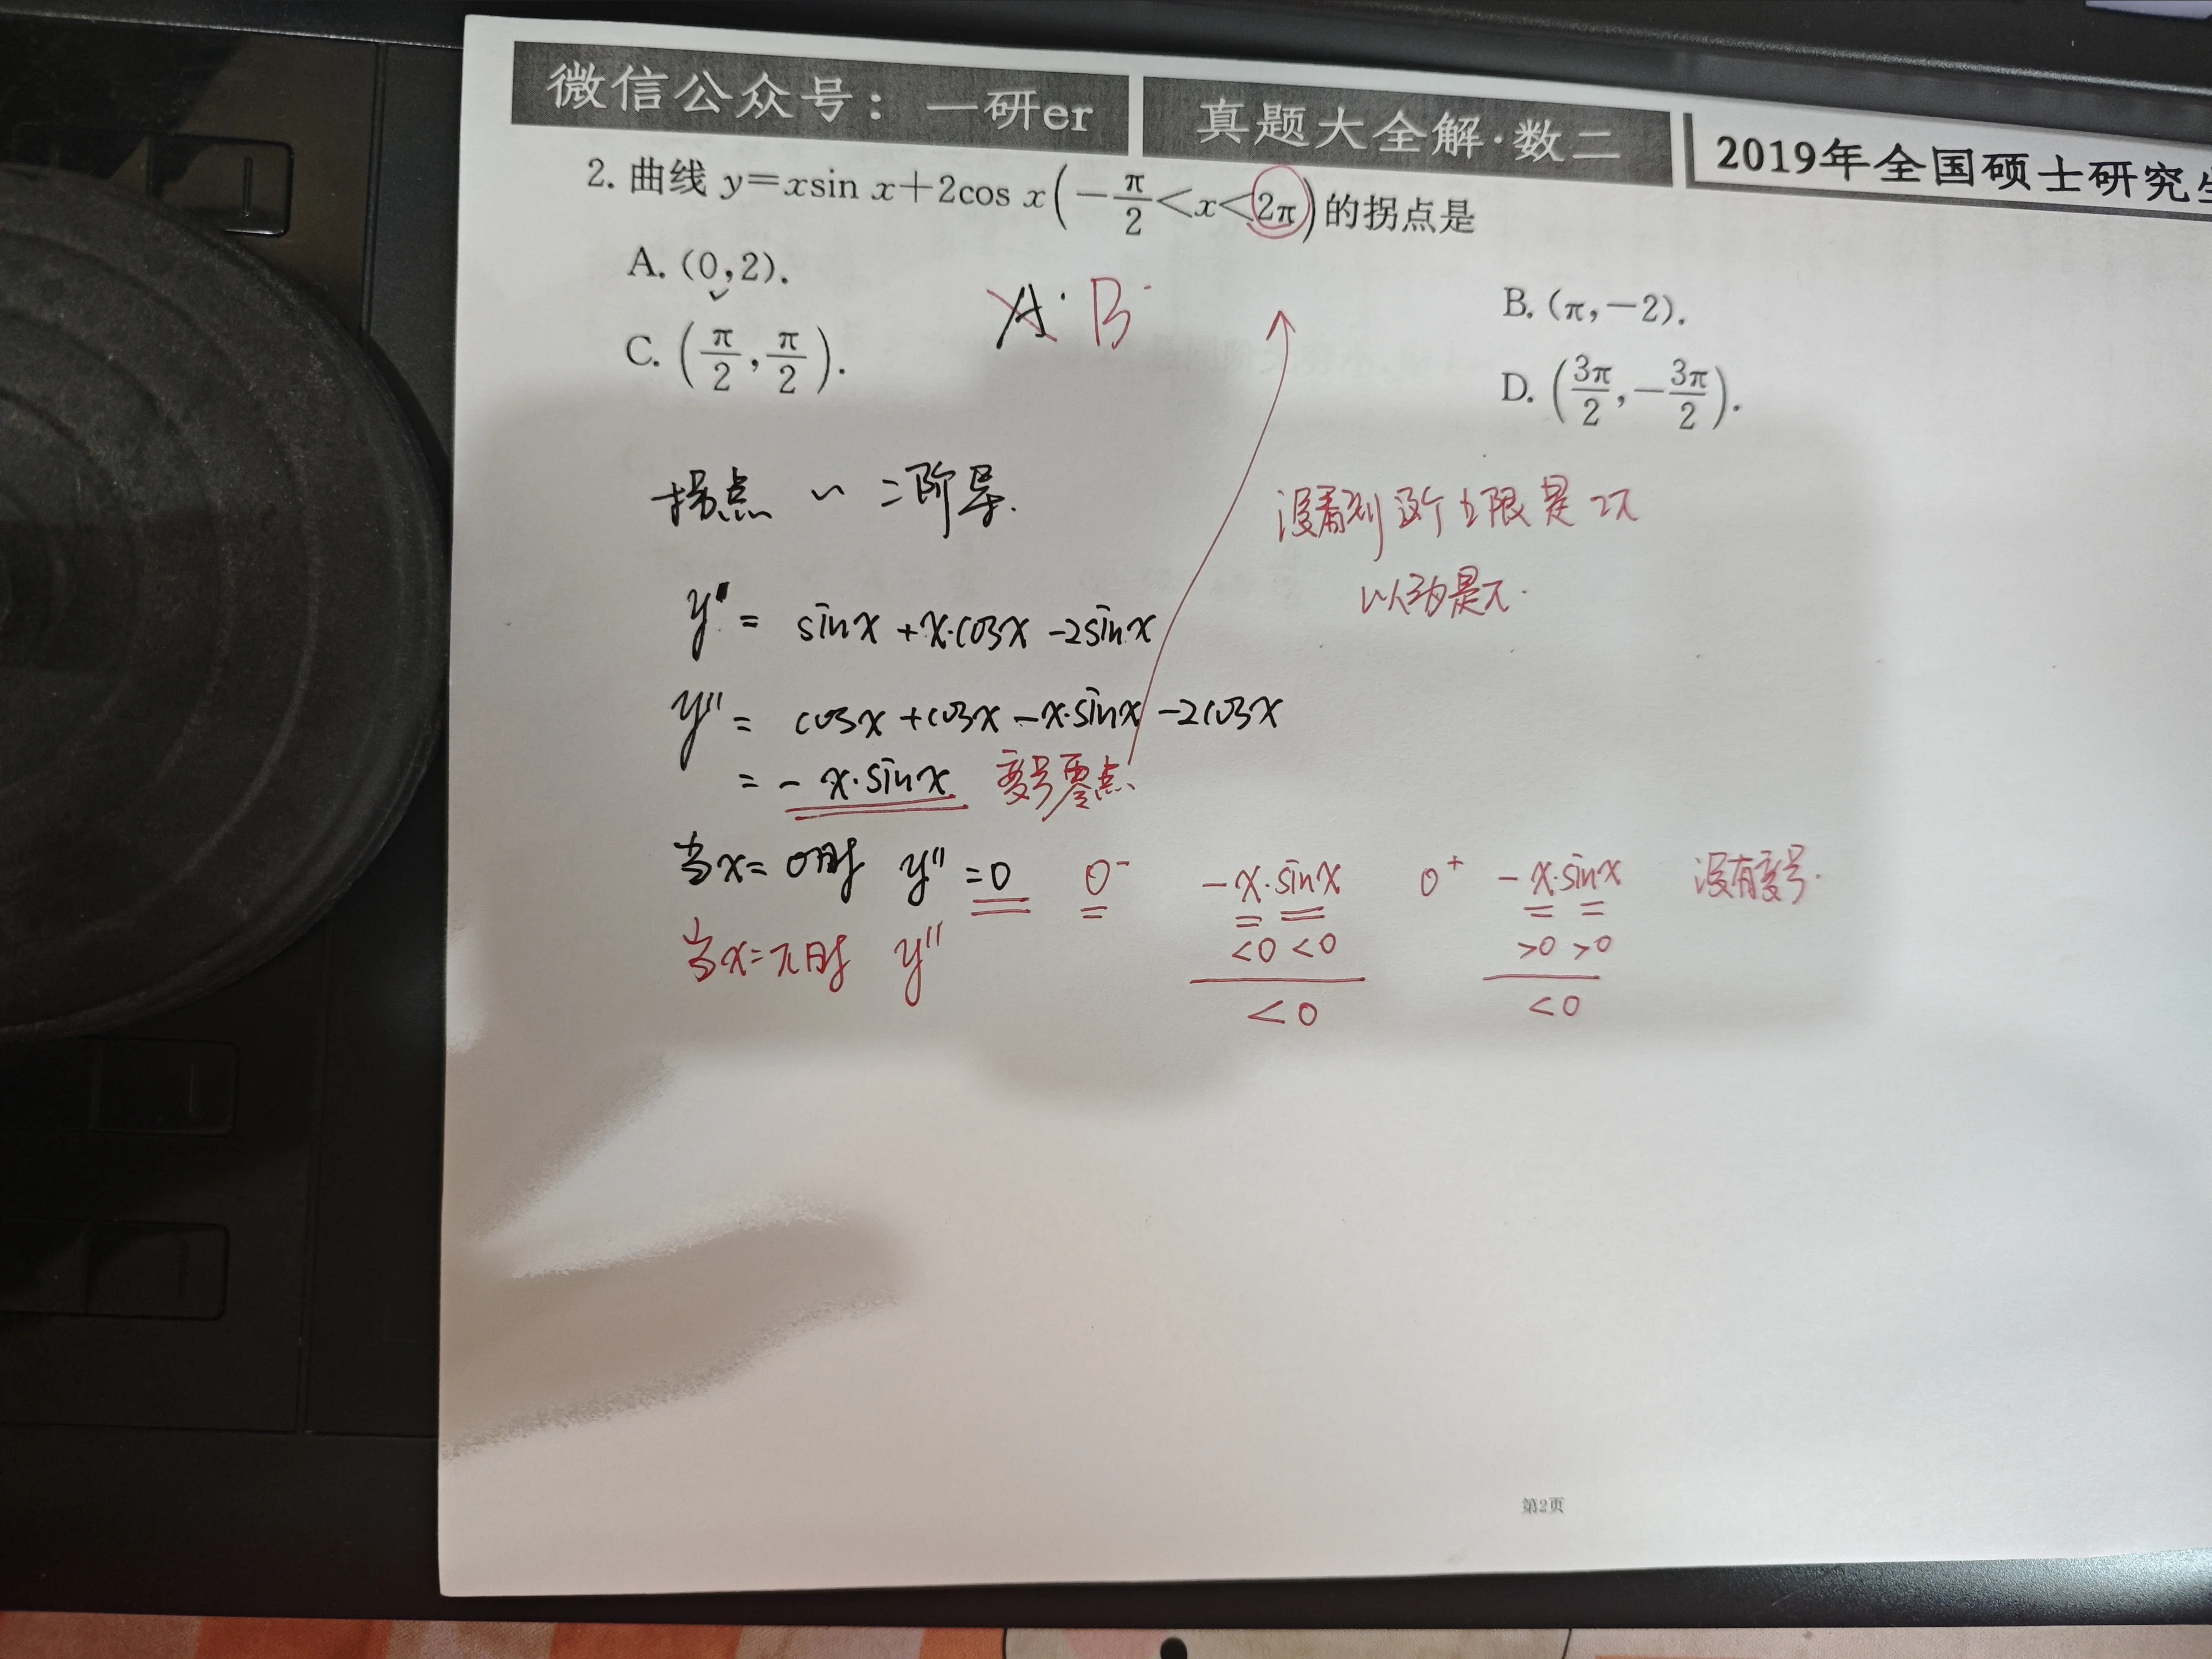 微信公众号：一研er
真题大全解·数二
2019年全国硕士研究生
2. 曲线 y=xsin x+2cos x(-π/2<x<2π)的拐点是
A. (0,2).
B. (π,-2).
C. (π/2,π/2).
D. (3π/2,-3π/2).
A. B.
拐点 ~ 二阶导.
没看到这个上限是2π
以为是π.
y' = sinx +x·cosx -2sinx
y'' = cosx +cosx -x·sinx -2cosx
= - x·sinx 变号零点
当x=0时 y''=0 0⁻ -x·sinx 0⁺ -x·sinx 没有变号.
<0 <0 >0 >0
<0 <0
当x=π时 y''
第2页